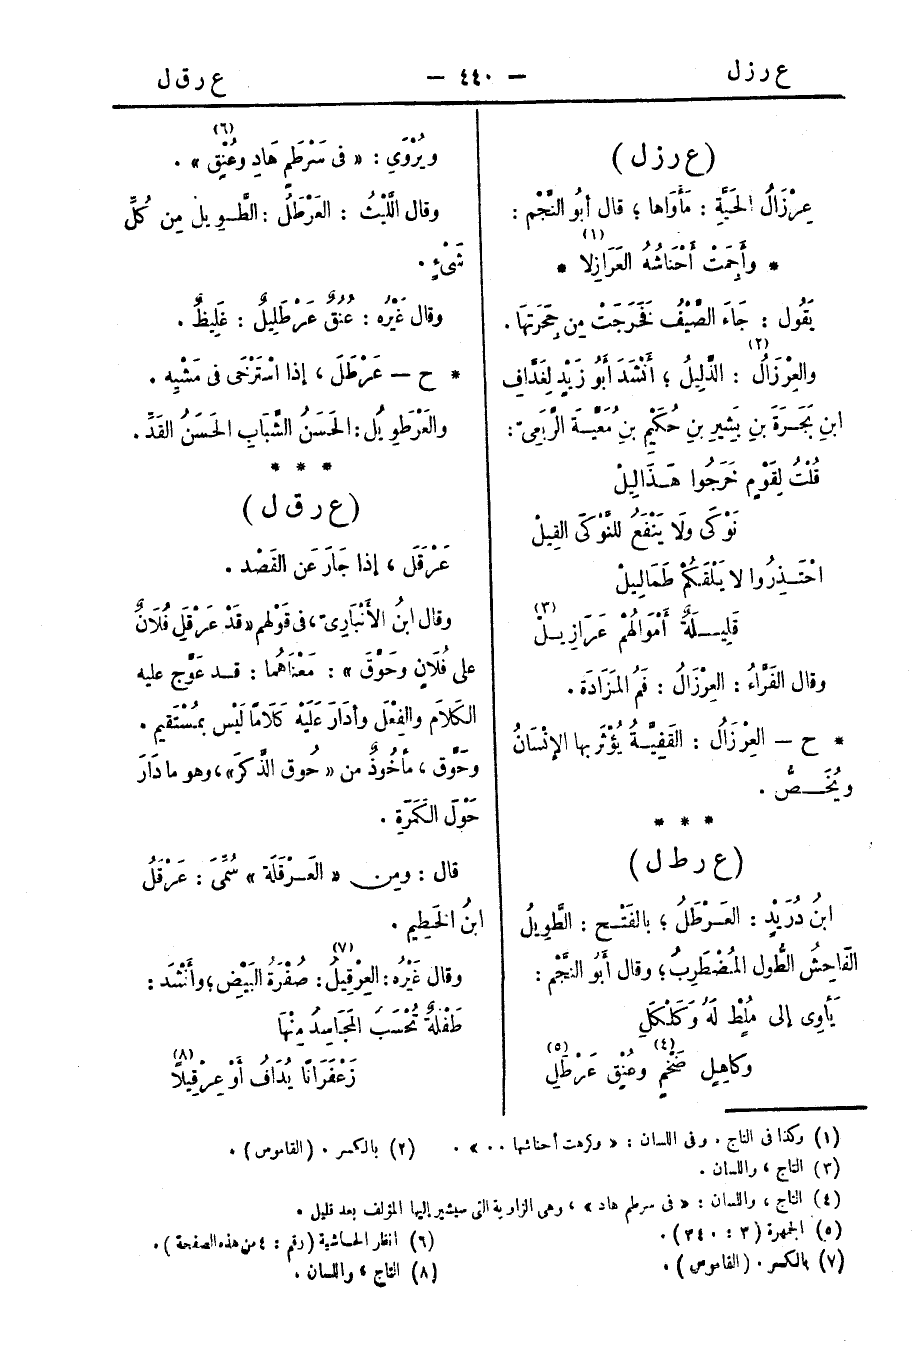 ع ر ز ل
— ٤٤٠ —
ع ر ق ل
(ع ر ز ل)
عِرْزَالُ الحَيَّةِ : مَأْوَاها ؛ قال أبُو النَّجْمِ :
* وأَجَمَتْ أَحْنَاشُهُ العَرَازِلا (١) *
يَقُول : جَاءَ الصَّيْفُ فَخَرَجَتْ مِن جِحَرَتِهَا .
والعِرْزَالُ (٢) : الذَّلِيلُ ؛ أَنْشَدَ أَبُو زَيْدٍ لِغَدَّافِ
ابنِ بَجَرَةَ بنِ بَشِيرِ بنِ حُكَيْمِ بنِ مُعَيَّةَ الرَّبَعِىّ :
قُلْتُ لِقَوْمٍ خَرَجُوا هَذَالِيلْ
نَوْكَى ولَا يَنْفَعُ للنَّوْكَى القِيلْ
احْتَذِرُوا لا يَلْقَكُمْ طَمَالِيلْ
قَلِيلَةٌ أَمْوَالُهُمْ عَرَازِيلْ (٣)
وقال الفَرَّاءُ : العِرْزَالُ : فَمُ المَزَادَةِ .
* ح — العِرْزَالُ : القَفِيَّةُ يُؤْثَر بها الإِنْسَانُ
ويُخَصُّ .
* * *
(ع ر ط ل)
ابنُ دُرَيْدٍ : العَرْطَلُ ؛ بالفَتْح : الطَّوِيلُ
الفَاحِشُ الطُّول المُضْطَرِبُ ؛ وقال أَبُو النَّجْمِ :
يَأوِى إلى مُلْطٍ لَهُ وَكَلْكَلِ
وكاهِلٍ ضَخْمٍ (٤) وعُنْقٍ عَرْطَلِ (٥)
ويُرْوَى : « فى سَرْطَمٍ هَادٍ وعُنْقٍ (٦) » .
وقال اللَّيْثُ : العَرْطَلُ : الطَّوِيلُ مِن كُلِّ
شَىْءٍ .
وقال غَيْرُه : عُنُقٌ عَرْطَلِيلٌ : غَلِيظٌ .
* ح — عَرْطَلَ ، إذا اسْتَرْخَى فى مَشْيِه .
والعَرْطَوِيلُ : الحَسَنُ الشَّبَابِ الحَسَنُ القَدِّ .
* * *
(ع ر ق ل)
عَرْقَلَ ، إذا جَارَ عَن القَصْد .
وقال ابنُ الأَنْبَارِىّ ، فى قَوْلهم « قَدْ عَرْقَلَ فُلَانٌ
على فُلَانٍ وحَوَّقَ » : مَعْنَاهُما : قد عَوَّج عليه
الكَلَامَ والفِعْلَ وأَدَارَ عَلَيْه كَلَامًا لَيْس بمُسْتَقيم .
وحَوَّق ، مأخُوذٌ من « حُوق الذَّكَر » ، وهو ما دَارَ
حَوْلَ الكَمَرَةِ .
قال : ومِن « العَرْقَلَة » سُمِّىَ : عَرْقَلُ
ابنُ الخَطِيم .
وقال غَيْرُه : العِرْقِيلُ (٧) : صُفْرَةُ البَيْض ؛ وأَنْشَد :
طَفْلَةٌ تُحْسَبُ المَجَاسِدُ مِنْهَا
زَعْفَرَانًا يُدَافُ أَوْ عِرْقِيلَا (٨)
(١) وكذا فى التاج . وفى اللسان : « وكرهت أحناشها .. » .
(٢) بالكسر . (القاموس) .
(٣) التاج ، واللسان .
(٤) التاج ، واللسان : « فى سرطم هاد » ، وهى الزاوية التى سيشير إليها المؤلف بعد قليل .
(٥) الجمهرة (٣ : ٣٤٠) .
(٦) انظر الحاشية (رقم : ٤ من هذه الصفحة) .
(٧) بالكسر . (القاموس) .
(٨) التاج ، واللسان .